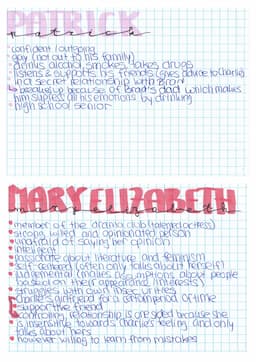 PATRICK
patrick
confident / outgoing
gay (not out to his family)
drinks alcohol, smokes, takes drugs
listens & supports his friends (gives advice to Charlie)
in a secret relationship with Brad
breaks up because of Brad's dad which makes
him supress all his emotions by drinking
high school senior
MARY ELIZABETH
mary elizabeth
member of the drama club (talented actress)
strong willed and opinionated person
unafraid of saying her opinion
intelligent
passionate about literature and feminism
self-centered (often only talks about herself)
judgemental (makes assumptions about people
based on their appearance, interests)
struggles with own insecurities
Charlie's girlfriend for a certain period of time
support the friend
controlling, relationship is one sided because she
is insensitive towards Charlie's feeling and only
talks about hers
however willing to learn from mistakes